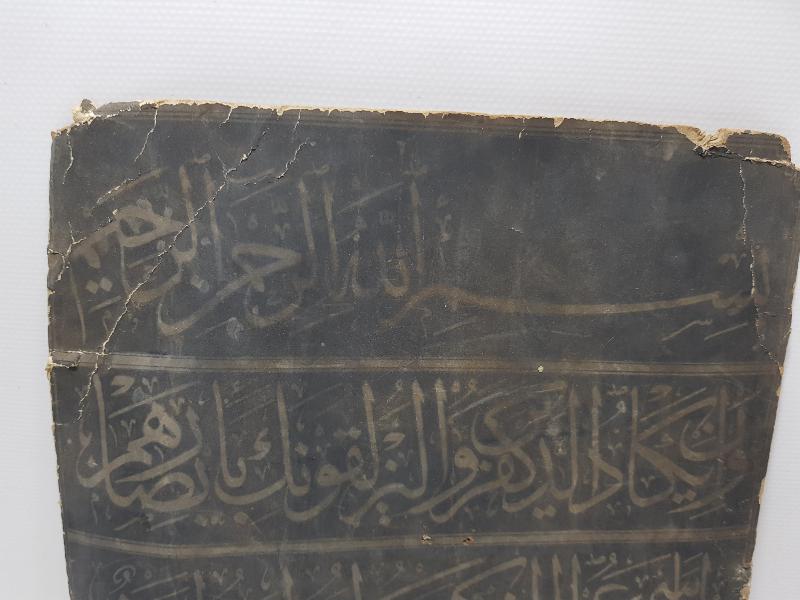 بسم الله الرحمن الرحيم
وان يكاد الذين كفروا ليزلقونك بابصارهم